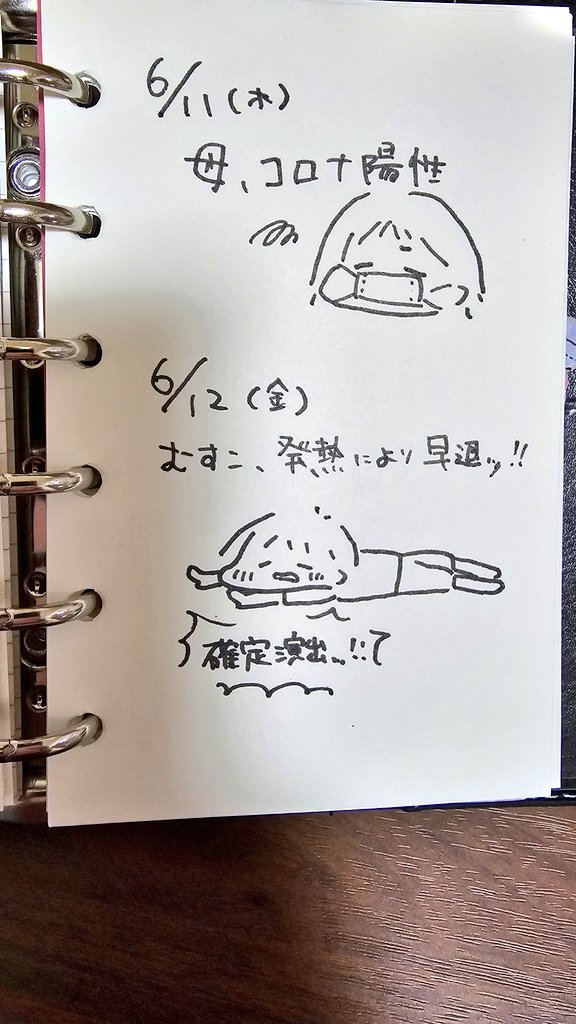 6/11(木)
母、コロナ陽性
6/12(金)
むすこ、発熱により早退ッ!!
確定演出ッ..!!て